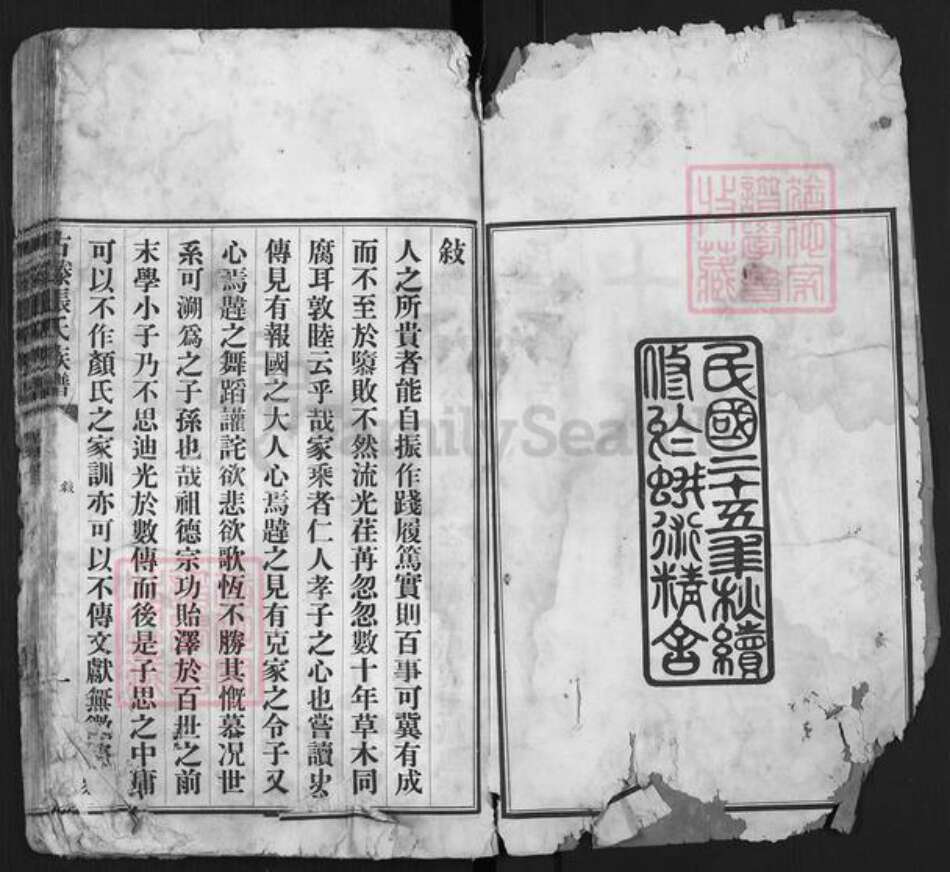 民國二十五年秋續
修於蛾術精舍
敍
人之所貴者能自振作踐履篤實則百事可冀有成
而不至於隳敗不然流光荏苒忽忽數十年草木同
腐耳敦睦云乎哉家乘者仁人孝子之心也嘗讀史
傳見有報國之大人心焉韙之見有克家之令子又
心焉韙之舞蹈讙詫欲悲欲歌恆不勝其慨慕况世
系可溯爲之子孫也哉祖德宗功貽澤於百世之前
末學小子乃不思迪光於數傳而後是子思之中庸
可以不作顏氏之家訓亦可以不傳文獻無
張氏族譜
敍
一
FamilySearch